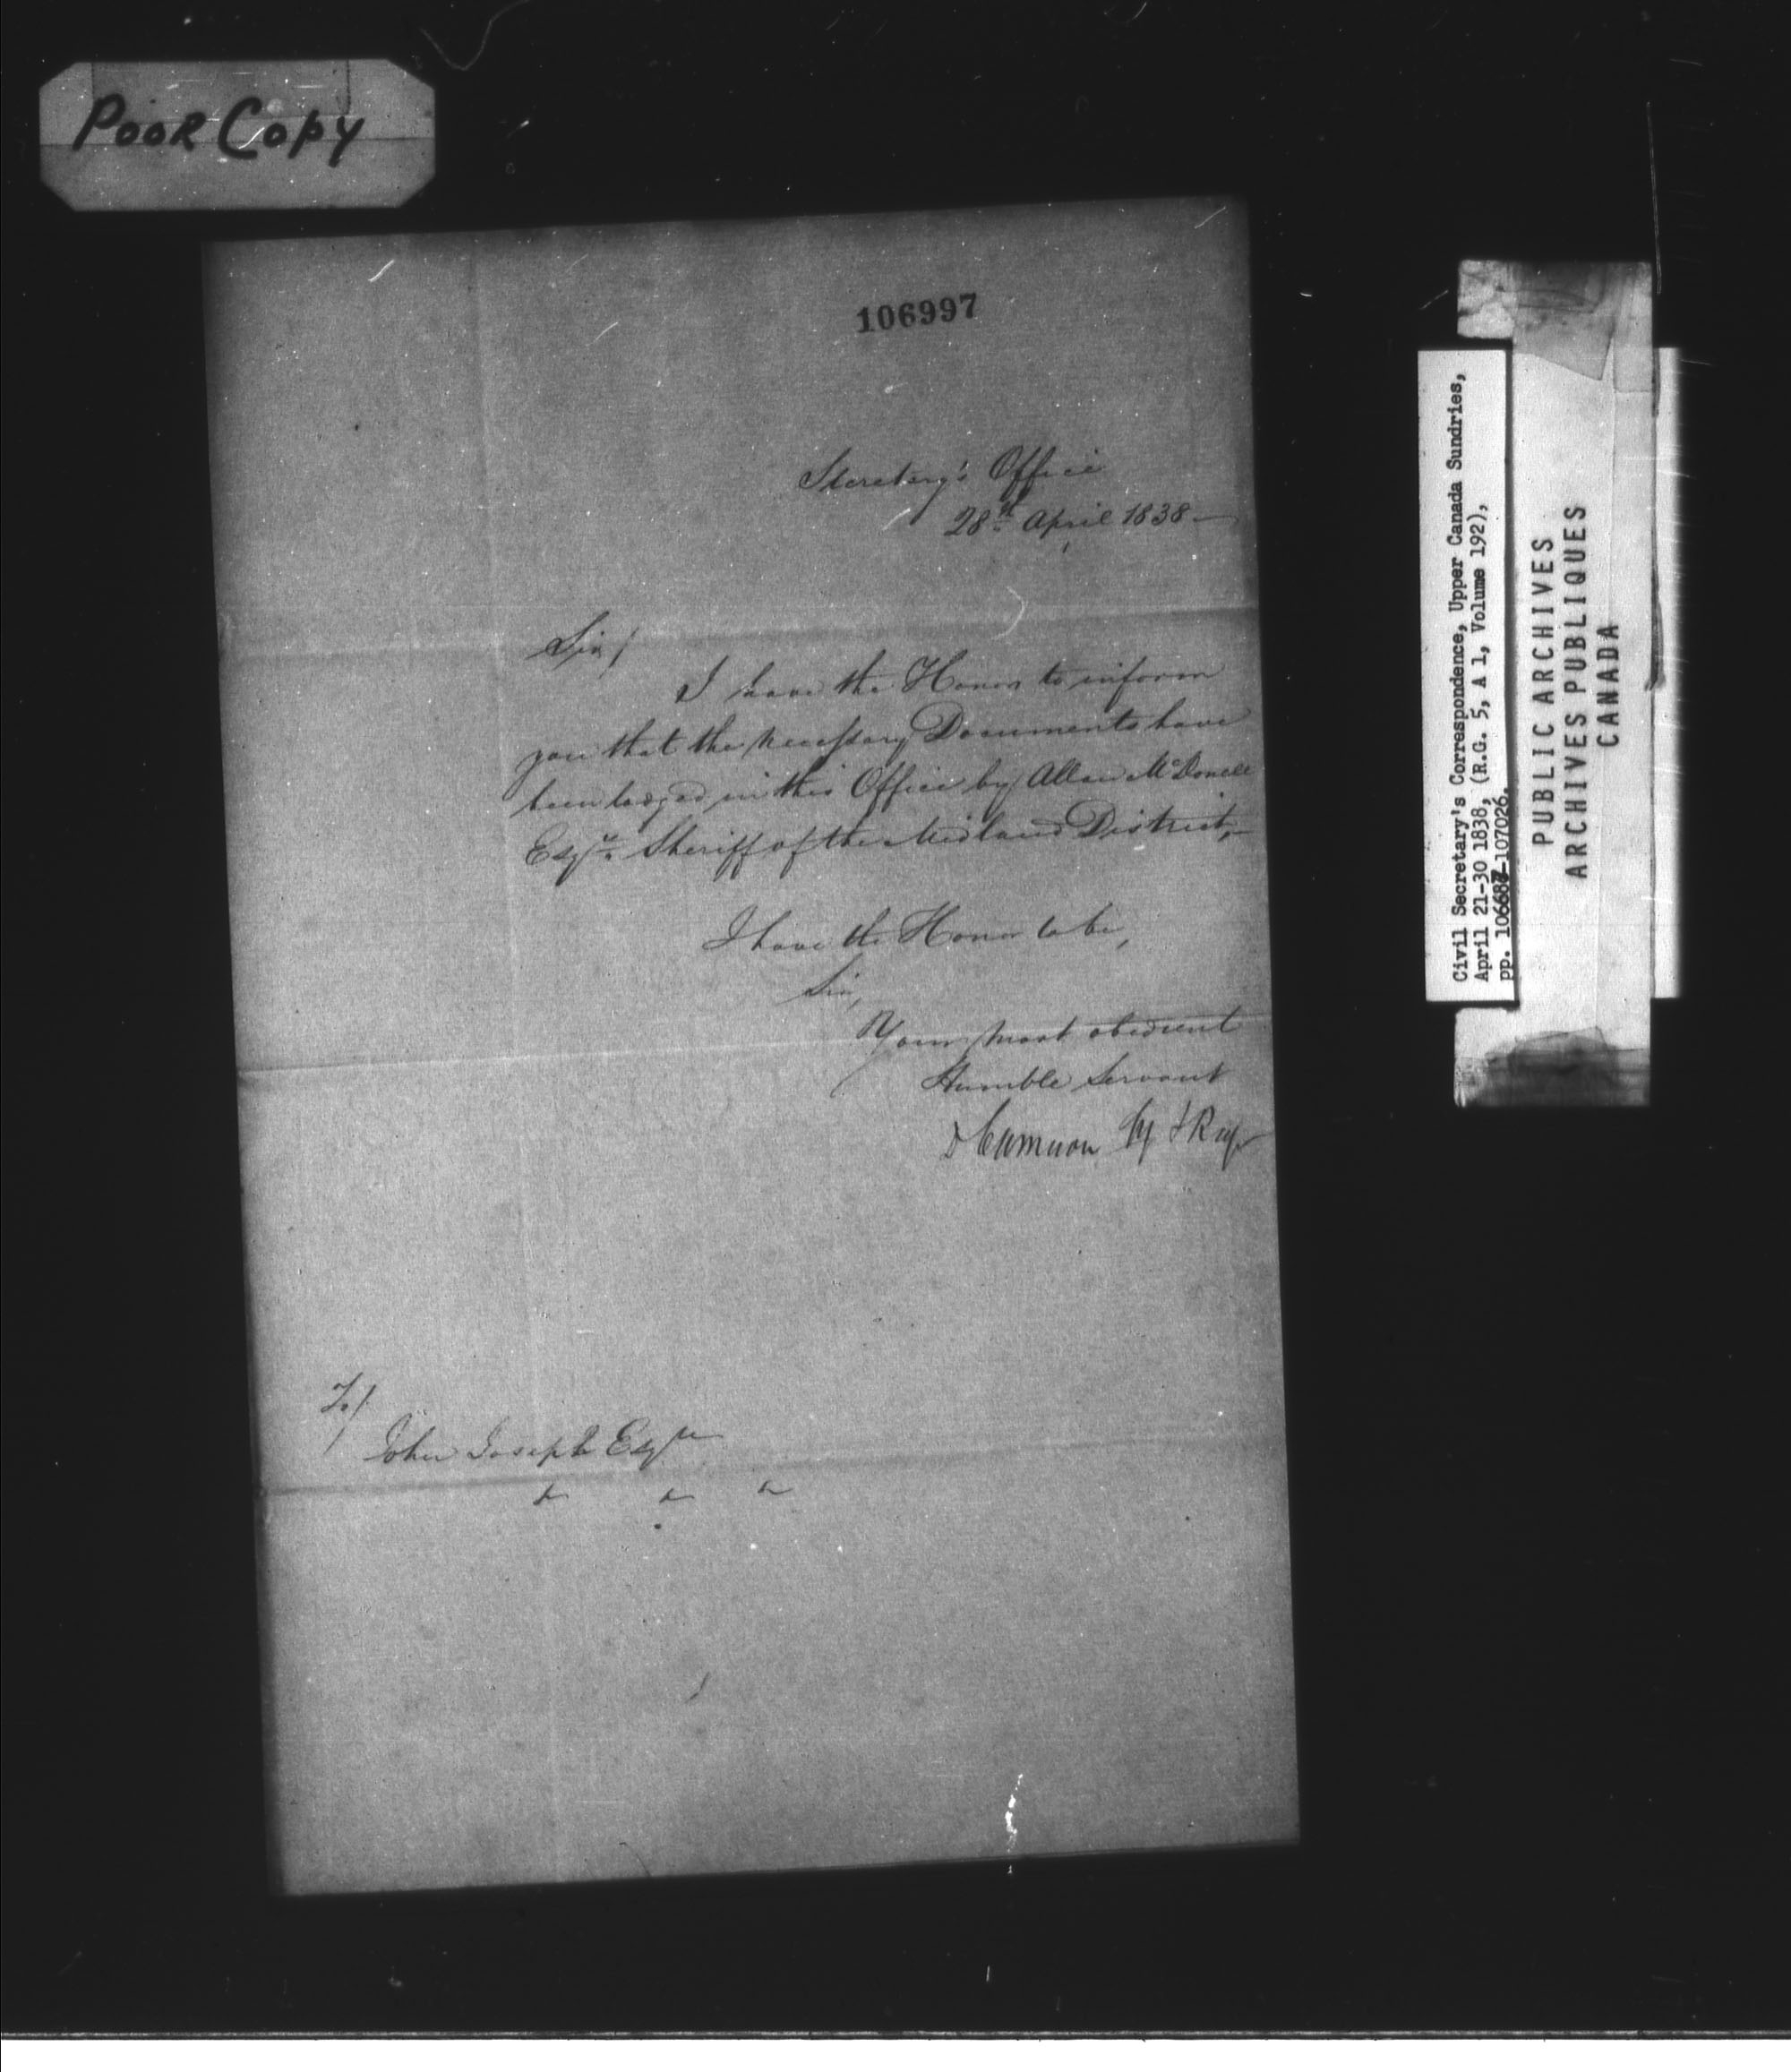 Poor Copy
106997
Secretary's Office
28th April 1838 —
Sir/
I have the Honor to inform
you that the necessary Documents have
been lodged in this Office by Allan McDonell
Esqre. Sheriff of the Midland District, —
I have the Honor to be,
Sir,
Your most obedient
Humble Servant
D Cameron Sy & Reg
To/
John Joseph Esqre
Civil Secretary's Correspondence, Upper Canada Sundries,
April 21-30 1838, (R.G. 5, A 1, Volume 192),
pp. 106687-107026.
PUBLIC ARCHIVES
ARCHIVES PUBLIQUES
CANADA